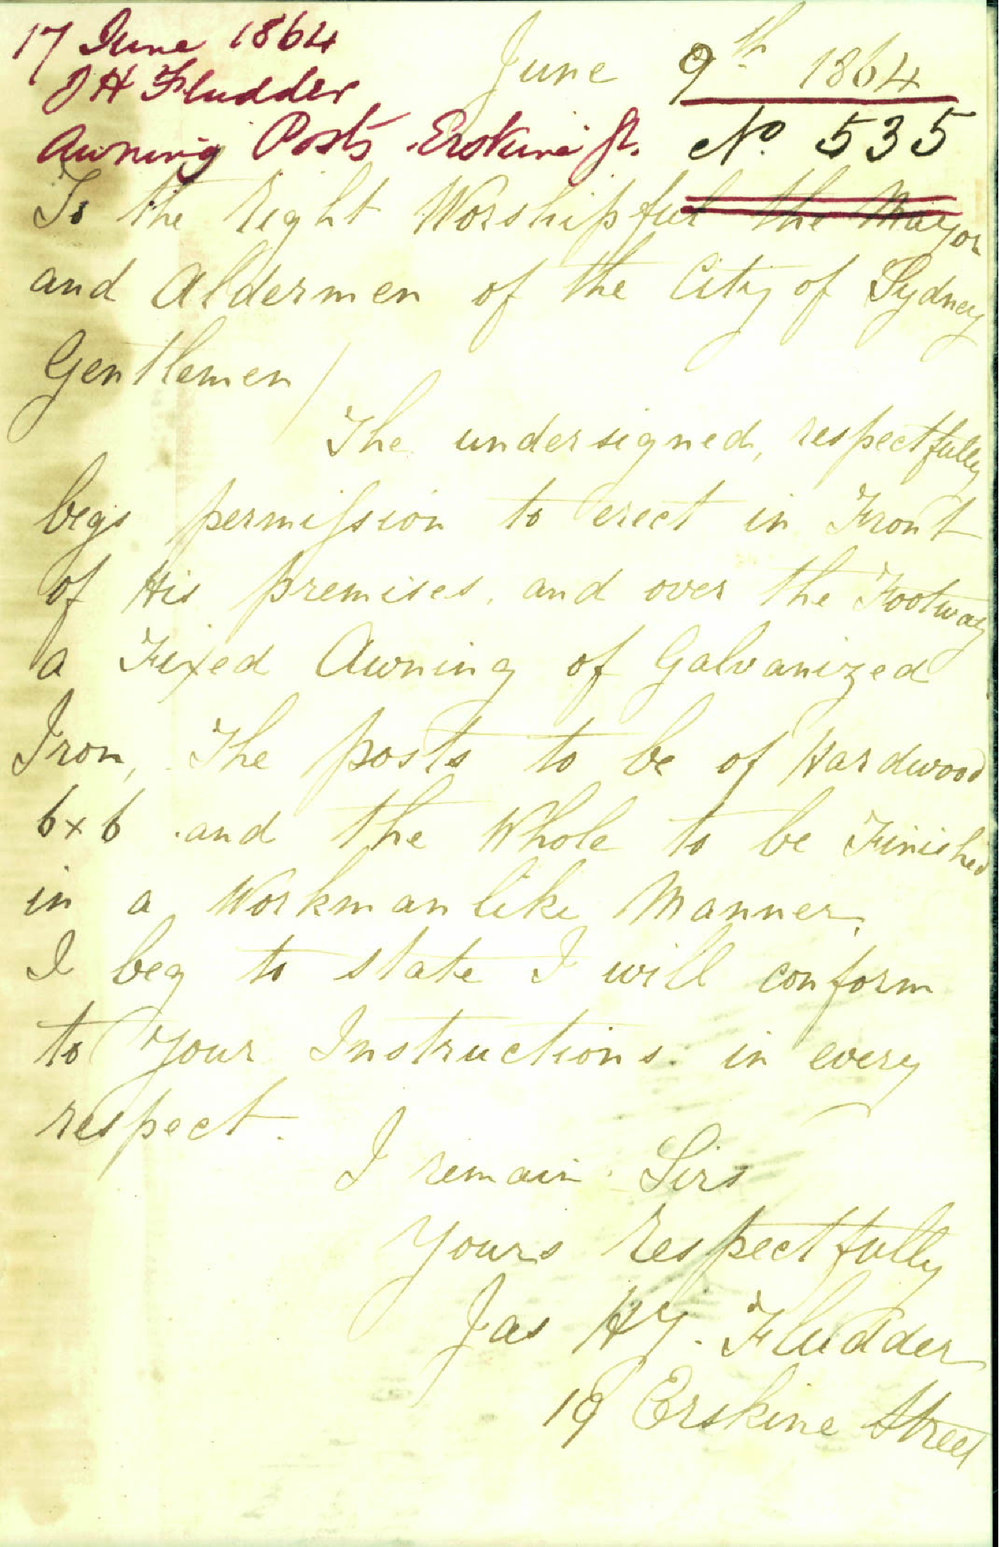 17 June 1864
J H Fludder
Awning Posts Erskine St.
June 9th 1864
No. 535
To the Right Worshipful the Mayor
and Aldermen of the City of Sydney
Gentlemen/
The undersigned, respectfully
begs permission to erect in Front
of His premises, and over the Footway
a Fixed Awning of Galvanized
Iron, The posts to be of Hardwood
6x6 and the Whole to be Finished
in a Workmanlike Manner.
I beg to state I will conform
to Your Instructions in every
respect.
I remain Sirs
Yours Respectfully
Jas Hy. Fludder
19 Erskine Street